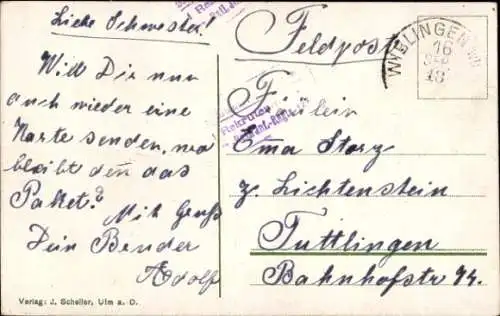 Liebe Schwester!
Will Dir nun
auch wieder eine
Karte senden, wo
bleibt den das
Paket?
Mit Gruß
Dein Bruder
Adolf
Verlag: J. Scheller, Ulm a. D.
Rekruten
Feldpost
WIBLINGEN
16
SEP
18
Rekruten
Fräulein
Ema Storz
z. Lichtenstein
Tuttlingen
Bahnhofstr 94.